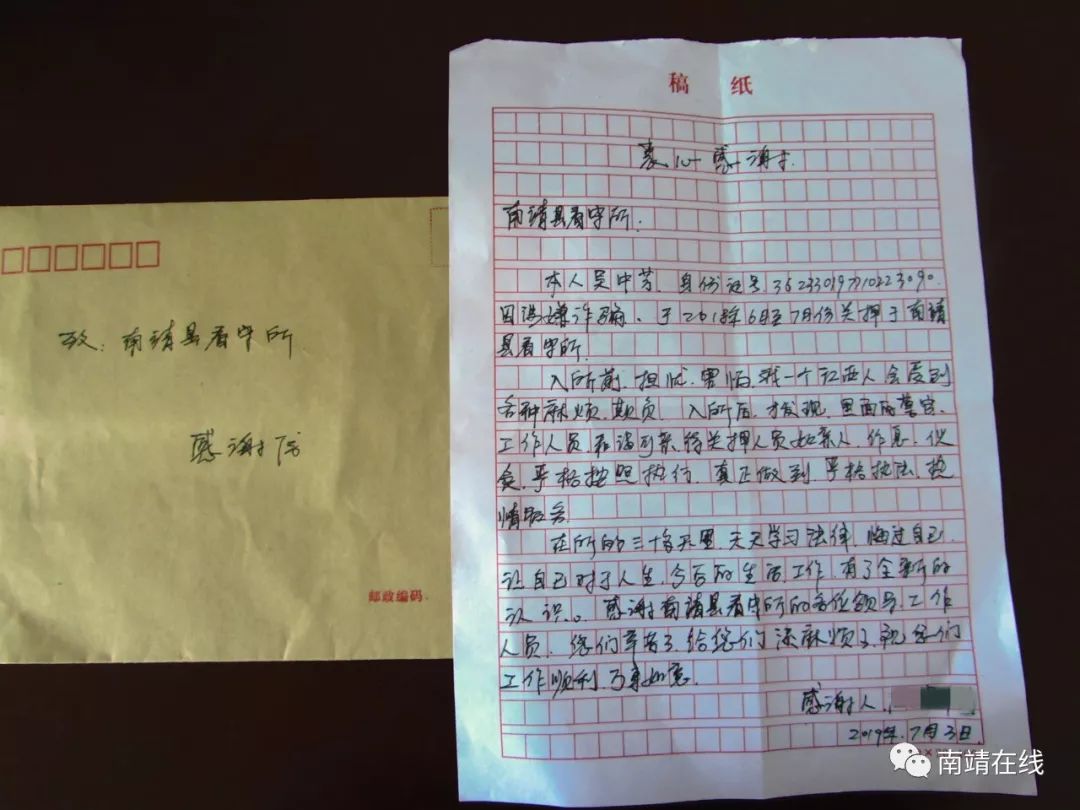 稿纸
衷心感谢
南靖县看守所:
本人吴中芳,身份证号
因涉嫌诈骗,于2018年6月至7月份关押于南靖
县看守所.
入所前,担忧,害怕,我一个江西人会受到
各种麻烦,欺负,入所后,才发现,里面的警官,
工作人员,和谐可亲,待关押人员如亲人,作息,伙
食,严格按照执行,真正做到,严格执法,热
情服务
在所的三十多天里,天天学习法律,悔过自己,
让自己对于人生,今后的生活工作,有了全新的
认识。感谢南靖县看守所的各位领导,工作
人员,您们辛苦了,给您们添麻烦了,祝您们
工作顺利,万事如意.
感谢人
2019年.7月3日.
致:南靖县看守所
感谢信
邮政编码
南靖在线